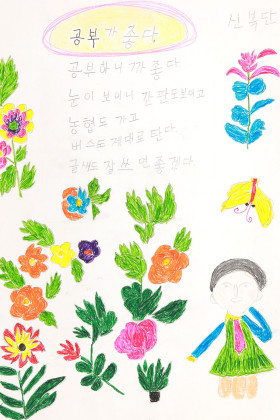 공부가 좋다
신복단
공부하니까 좋다
눈이 보이니 간판도보이고
농협도 가고
버스도 제대로 탄다
글씨도 잘 쓰면 좋겠다